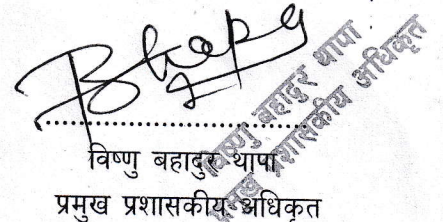 विष्णु बहादुर थापा
प्रमुख प्रशासकीय अधिकृत
विष्णु बहादुर थापा
प्रमुख प्रशासकीय अधिकृत